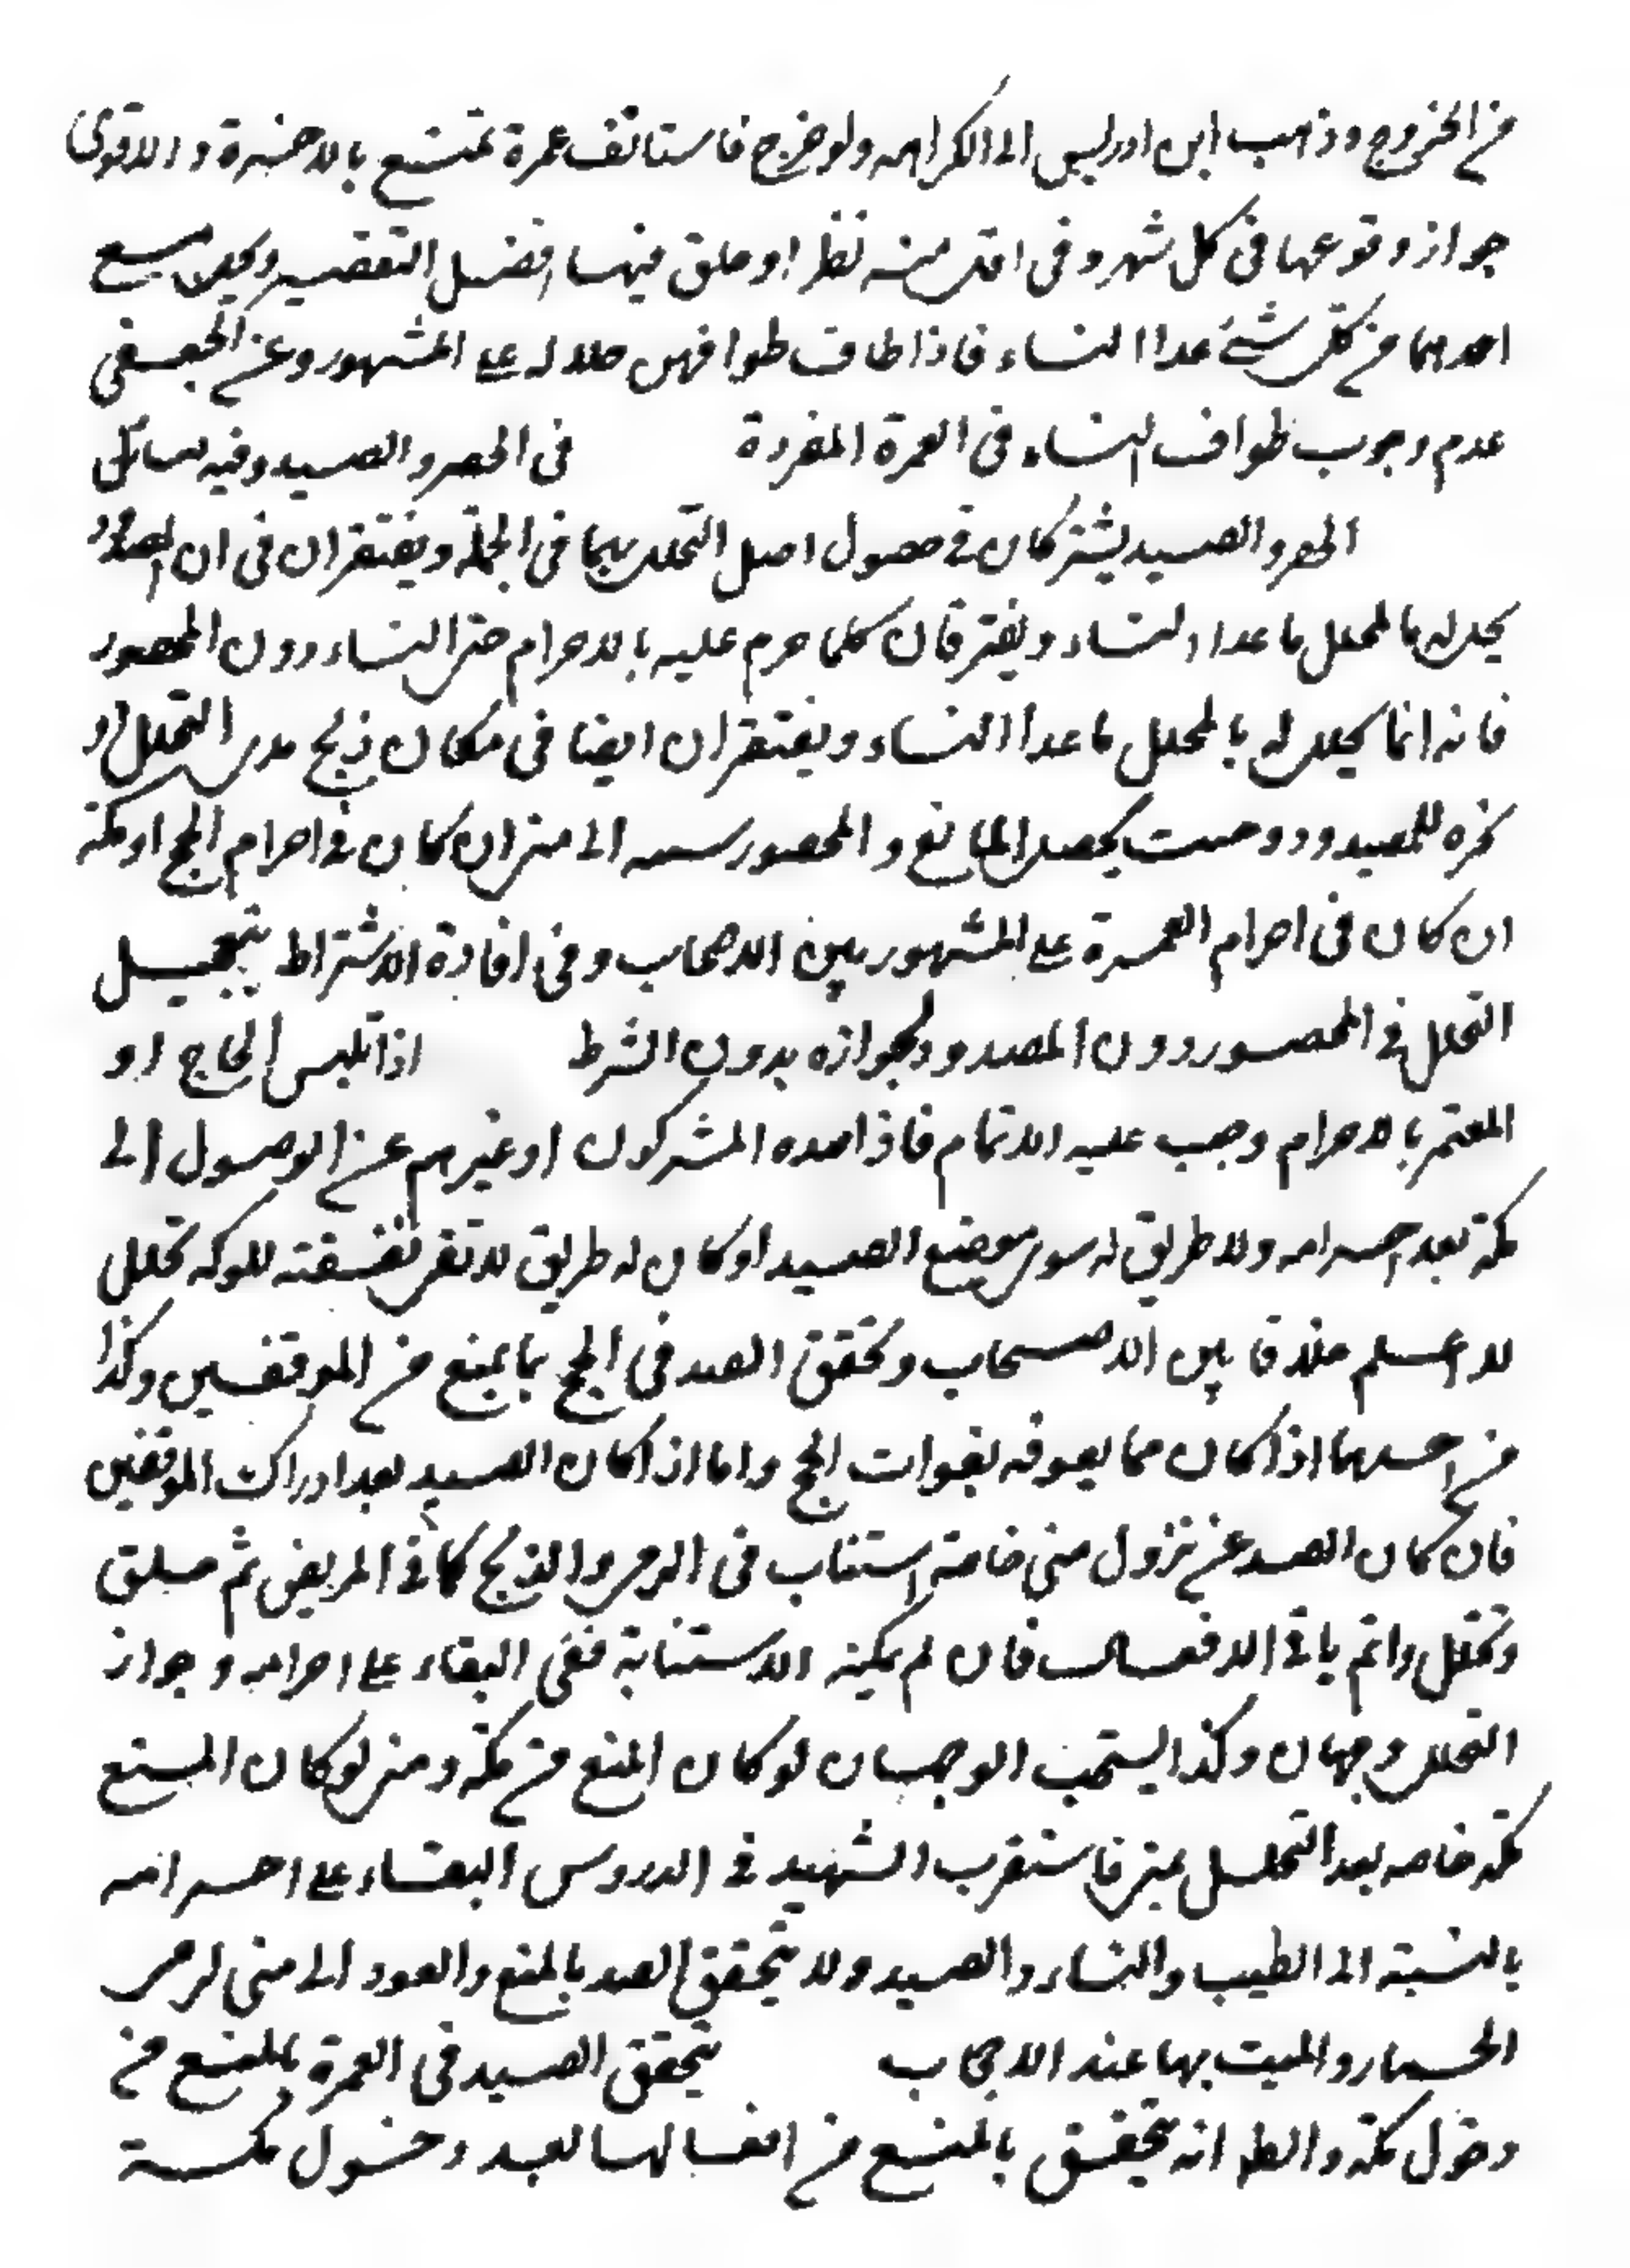 من الخروج وذهب ابن ادريس الى الكراهه ولو خرج فاستانف عمرة تمتع بالاخيرة والاقوى
جواز وقوعها فى كل شهر وفى اقل منه نظر او حلق فيهما افضل التقصير ويحل مع
احدهما من كل شئ عدا النساء فاذا طاف طوافهن حللن له على المشهور وعن الجعفى
عدم وجوب طواف النساء فى العمرة المفردة فى الحصر والصد وفيه مسائل
الحصر والصد يشتركان فى حصول اصل التحلل بهما فى الجملة ويفترقان فى ان المصدود
يحل له بالمحلل ما عدا النساء ويفترقان كلما حرم عليه بالاحرام حتى النساء دون المحصور
فانه انما يحل له بالمحلل ما عدا النساء ويفترقان ايضا فى مكان ذبح هدى التحلل او
نحره للمصدود وحيث يحصل المانع والمحصور يبعثه الى منى ان كان فى احرام الحج او مكة
ان كان فى احرام العمرة على المشهور بين الاصحاب وفى افادة الاشتراط تعجيل
التحلل فى المحصور دون المصدود لجوازه بدون الشرط اذا تلبس الحاج او
المعتمر بالاحرام وجب عليه الاتمام فاذا صده المشركون او غيرهم عن الوصول الى
مكة بعد احرامه ولا طريق له سوى موضع الصد او كان له طريق لا تفى نفقته للوكه تحلل
لا اعلم خلافا بين الاصحاب وتحقق الصد فى الحج بما يمنع من الموقفين وكذا
من احدهما اذا كان مما يفوته بفوات الحج واما اذا كان الصد بعد ادراك الموقفين
فان كان الصد عن نزول منى خاصة استناب فى الرمى والذبح كما فى المريض ثم حلق
وتحلل واتم باقى الافعال فان لم يمكنه الاستنابة ففى البقاء على احرامه وجواز
التحلل وجهان وكذا يستحب الوجهان لو كان المنع من مكة ومنى لو كان المنع
مكة خاصه بعد التحلل بمنى فاستقرب الشهيد فى الدروس البقاء على احرامه
بالنسبة الى الطيب والنساء والصيد ولا يتحقق الصد بالمنع والعود الى منى لرمى
الجمار والمبيت بها عند الاصحاب يتحقق الصد فى العمرة بالمنع من
دخول مكة والظ انه يتحقق بالمنع من افعالها بعد دخول مكة